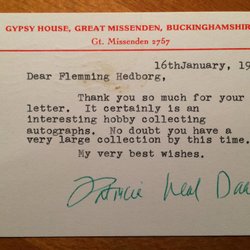 GYPSY HOUSE, GREAT MISSENDEN, BUCKINGHAMSHIR
Gt. Missenden 2757
16thJanuary, 19
Dear Flemming Hedborg,
Thank you so much for your
letter. It certainly is an
interesting hobby collecting
autographs. No doubt you have a
very large collection by this time.
My very best wishes.
Patricia Neal Da